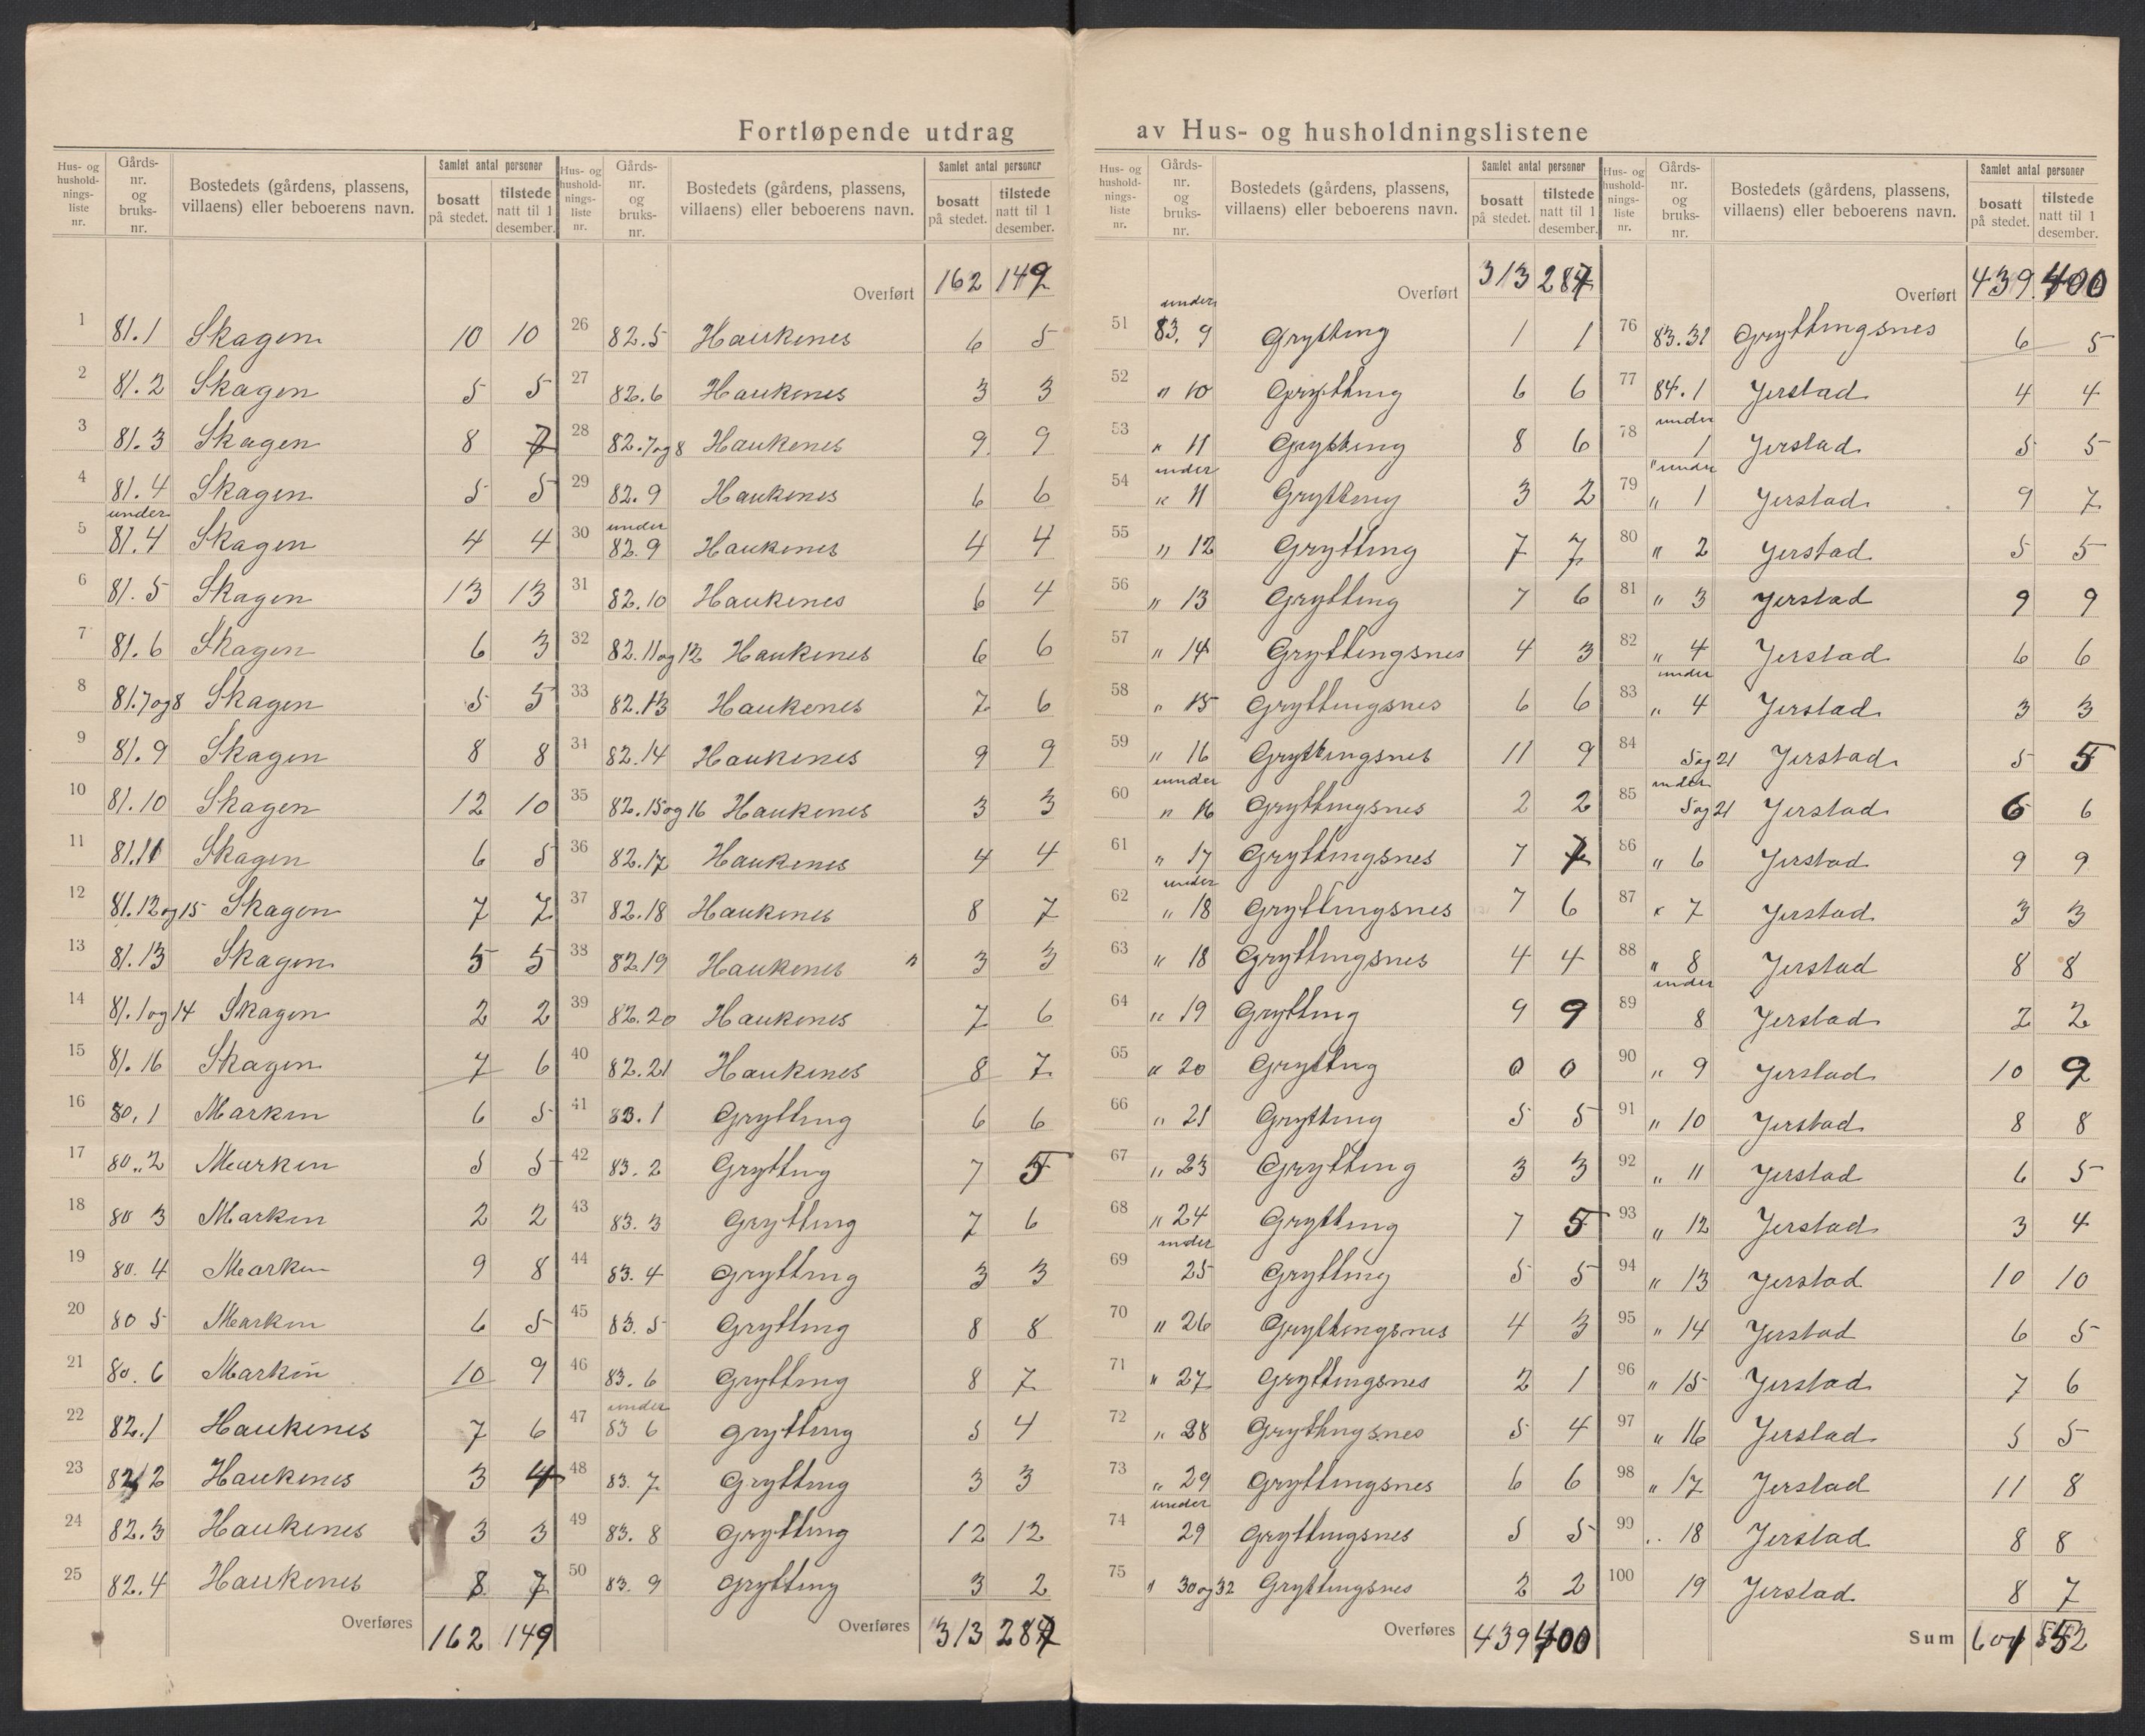 Fortløpende utdrag av Hus- og husholdningslistene
Hus- og hushold- nings- liste nr. Gårds- nr. og bruks- nr. Bostedets (gårdens, plassens, villaens) eller beboerens navn. Samlet antal personer bosatt på stedet. tilstede natt til 1 desember.
1 81.1 Skagen 10 10
2 81.2 Skagen 5 5
3 81.3 Skagen 8 7
4 81.4 Skagen 5 5
5 under 81.4 Skagen 4 4
6 81.5 Skagen 13 13
7 81.6 Skagen 6 3
8 81.7og8 Skagen 5 5
9 81.9 Skagen 8 8
10 81.10 Skagen 12 10
11 81.11 Skagen 6 5
12 81.12og15 Skagen 7 7
13 81.13 Skagen 5 5
14 81.1og14 Skagen 2 2
15 81.16 Skagen 7 6
16 80.1 Marken 6 5
17 80.2 Marken 5 5
18 80 3 Marken 2 2
19 80.4 Marken 9 8
20 80 5 Marken 6 5
21 80.6 Marken 10 9
22 82.1 Haukenes 7 6
23 82.2 Haukenes 3 4
24 82.3 Haukenes 3 3
25 82.4 Haukenes 8 7
Overføres 162 149
Hus- og hushold- nings- liste nr. Gårds- nr. og bruks- nr. Bostedets (gårdens, plassens, villaens) eller beboerens navn. Samlet antal personer bosatt på stedet. tilstede natt til 1 desember.
Overført 162 149
26 82.5 Haukenes 6 5
27 82.6 Haukenes 3 3
28 82.7og8 Haukenes 9 9
29 82.9 Haukenes 6 6
30 under 82.9 Haukenes 4 4
31 82.10 Haukenes 6 4
32 82.11og12 Haukenes 6 6
33 82.13 Haukenes 7 6
34 82.14 Haukenes 9 9
35 82.15og16 Haukenes 3 3
36 82.17 Haukenes 4 4
37 82.18 Haukenes 8 7
38 82.19 Haukenes " 3 3
39 82.20 Haukenes 7 6
40 82.21 Haukenes 8 7
41 83.1 Grytting 6 6
42 83.2 Grytting 7 5
43 83.3 Grytting 7 6
44 83.4 Grytting 3 3
45 83.5 Grytting 8 8
46 83.6 Grytting 8 7
47 under 83 6 Grytting 5 4
48 83.7 Grytting 3 3
49 83.8 Grytting 12 12
50 83.9 Grytting 3 2
Overføres 313 287
Hus- og hushold- nings- liste nr. Gårds- nr. og bruks- nr. Bostedets (gårdens, plassens, villaens) eller beboerens navn. Samlet antal personer bosatt på stedet. tilstede natt til 1 desember.
Overført 313 287
51 under 83.9 Grytting 1 1
52 " 10 Grytting 6 6
53 " 11 Grytting 8 6
54 under " 11 Grytting 3 2
55 " 12 Grytting 7 7
56 " 13 Grytting 7 6
57 " 14 Gryttingsnes 4 3
58 " 15 Gryttingsnes 6 6
59 " 16 Gryttingsnes 11 9
60 under " 16 Gryttingsnes 2 2
61 " 17 Gryttingsnes 7 7
62 under " 18 Gryttingsnes 7 6
63 " 18 Gryttingsnes 4 4
64 " 19 Grytting 9 9
65 " 20 Grytting 0 0
66 " 21 Grytting 5 5
67 " 23 Grytting 3 3
68 " 24 Grytting 7 5
69 under 25 Grytting 5 5
70 " 26 Gryttingsnes 4 3
71 " 27 Gryttingsnes 2 1
72 " 28 Gryttingsnes 5 4
73 " 29 Gryttingsnes 6 6
74 under 29 Gryttingsnes 5 5
75 " 30og32 Gryttingsnes 2 2
Overføres 439 400
Hus- og hushold- nings- liste nr. Gårds- nr. og bruks- nr. Bostedets (gårdens, plassens, villaens) eller beboerens navn. Samlet antal personer bosatt på stedet. tilstede natt til 1 desember.
Overført 439 400
76 83.31 Gryttingsnes 6 5
77 84.1 Jerstad 4 4
78 under 1 Jerstad 5 5
79 "under " 1 Jerstad 9 7
80 " 2 Jerstad 5 5
81 " 3 Jerstad 9 9
82 " 4 Jerstad 6 6
83 under " 4 Jerstad 3 3
84 5og21 Jerstad 5 5
85 under 5og21 Jerstad 6 6
86 " 6 Jerstad 9 9
87 " 7 Jerstad 3 3
88 " 8 Jerstad 8 8
89 under 8 Jerstad 2 2
90 " 9 Jerstad 10 9
91 " 10 Jerstad 8 8
92 " 11 Jerstad 6 5
93 " 12 Jerstad 3 4
94 " 13 Jerstad 10 10
95 " 14 Jerstad 6 5
96 " 15 Jerstad 7 6
97 " 16 Jerstad 5 5
98 " 17 Jerstad 11 8
99 " 18 Jerstad 8 8
100 19 Jerstad 8 7
Sum 601 552